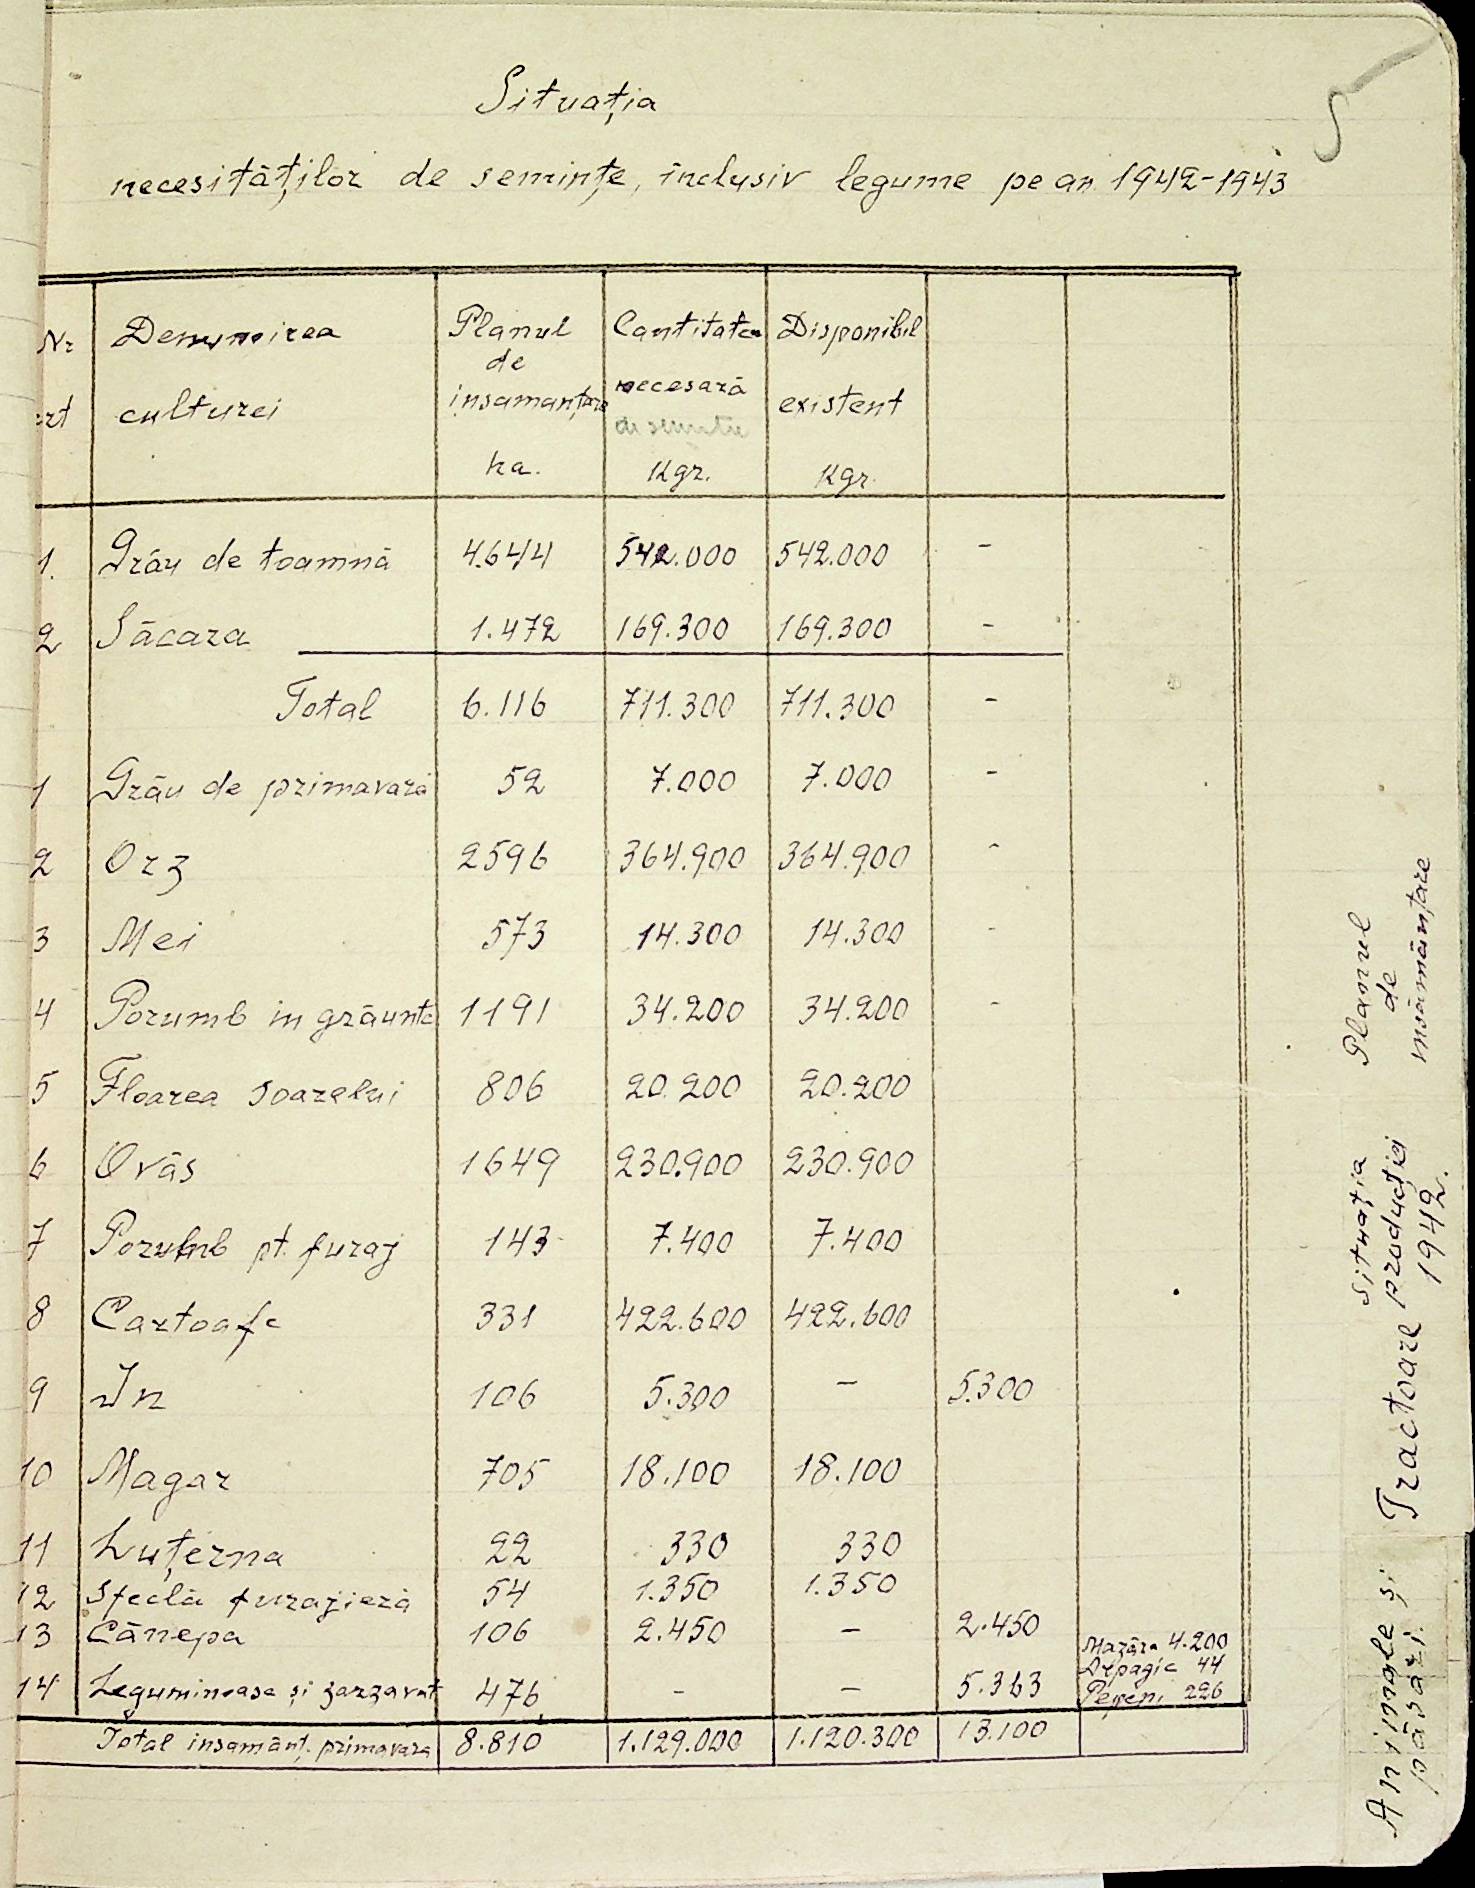 5
Situația
necesităților de semințe, inclusiv legume pe an 1942-1943
Nr crt Denumirea culturei Planul de insamanțare ha. Cantitatea necesară de semințe Kgr. Disponibil existent Kgr.
1. Grâu de toamnă 4.644 542.000 542.000 -
2 Săcara 1.472 169.300 169.300 -
Total 6.116 711.300 711.300 -
1 Grâu de primavară 52 7.000 7.000 -
2 Orz 2596 364.900 364.900 -
3 Mei 573 14.300 14.300 -
4 Porumb in grăunte 1191 34.200 34.200 -
5 Floarea soarelui 806 20.200 20.200
6 Ovăs 1649 230.900 230.900
7 Porumb pt. furaj 143 7.400 7.400
8 Cartoafe 331 422.600 422.600
9 In 106 5.300 - 5.300
10 Magar 705 18.100 18.100
11 Luțerna 22 330 330
12 Sfeclă furajieră 54 1.350 1.350
13 Cânepa 106 2.450 - 2.450
14 Leguminoase și zarzavat 476 - - 5.363 Mazăre 4.200
Arpagic 44
Pepeni 226
Total insamânț. primavara 8.810 1.129.000 1.120.300 13.100
Planul
de
însămânțare
Situația
producției
1942.
Tractoare
Animale și
păsări.